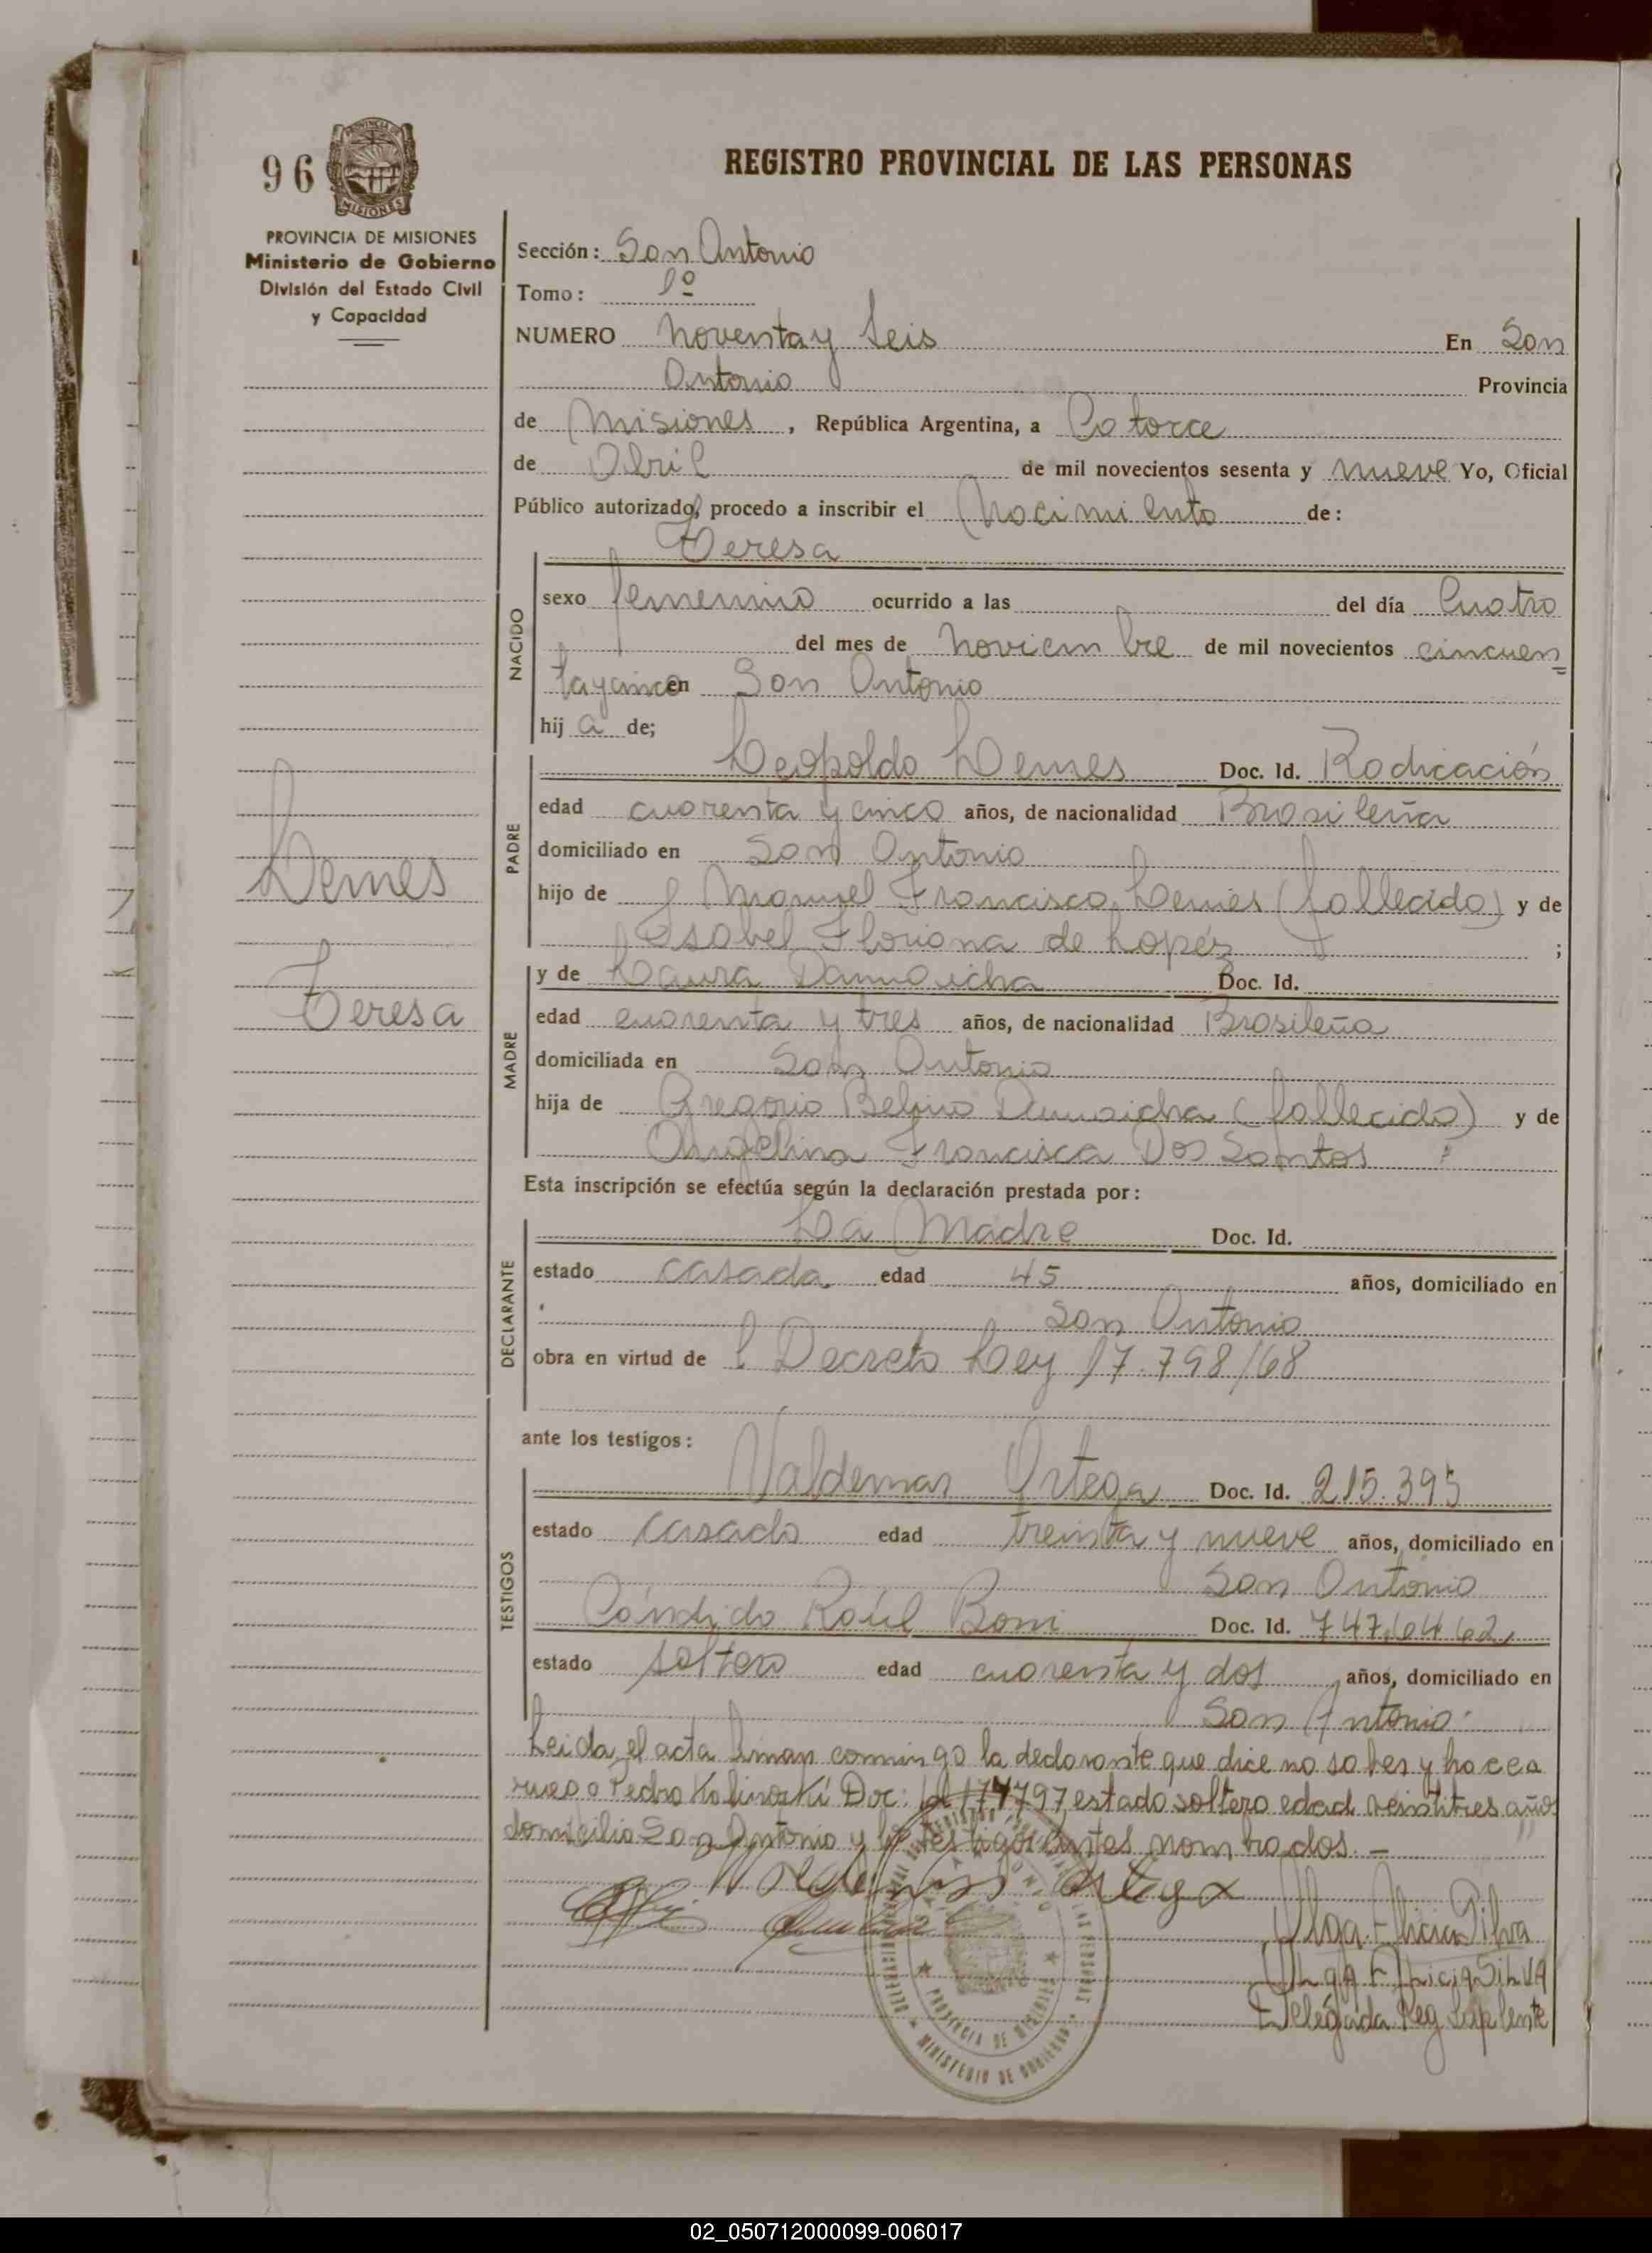 96
PROVINCIA DE MISIONES
Ministerio de Gobierno
División del Estado Civil
y Capacidad
REGISTRO PROVINCIAL DE LAS PERSONAS
Sección: San Antonio
Tomo: 1º
NUMERO Noventa y Seis En San
Antonio Provincia
de Misiones, República Argentina, a Catorce
de Abril de mil novecientos sesenta y nueve Yo, Oficial
Público autorizado, procedo a inscribir el Nacimiento de:
Teresa
NACIDO
sexo femenino ocurrido a las del día Cuatro
del mes de Noviembre de mil novecientos cincuen=
ta y cinco en San Antonio
hija de;
PADRE
Leopoldo Lemes Doc. Id. Radicación
edad cuarenta y cinco años, de nacionalidad Brasileña
domiciliado en San Antonio
hijo de Manuel Francisco Lemes (fallecido) y de
Isabel Floriana de Lopéz ;
Lemes
Teresa
MADRE
y de Laura Doc. Id.
edad cuarenta y tres años, de nacionalidad Brasileña
domiciliada en San Antonio
hija de Gregorio (fallecido) y de
Angelina Francisca Dos Santos
Esta inscripción se efectúa según la declaración prestada por:
DECLARANTE
La Madre Doc. Id.
estado casada edad 45 años, domiciliado en
San Antonio
obra en virtud de l Decreto Ley 17.798/68
ante los testigos:
TESTIGOS
Valdemar Ortega Doc. Id. 215.395
estado casado edad treinta y nueve años, domiciliado en
San Antonio
Cándido Raúl Boni Doc. Id.
estado soltero edad cuarenta y dos años, domiciliado en
San Antonio
Leida el acta firman conmingo la declarante que dice no saber y hace a
ruego Pedro Doc: Id estado soltero edad veintitres años
domicilio San Antonio y los testigos antes nombrados. —
Ortega
Olga Alicia Silva
Olga Alicia SILVA
Delegada Reg Suplente
PROVINCIA DE MISIONES
MINISTERIO DE GOBIERNO
02_050712000099-006017